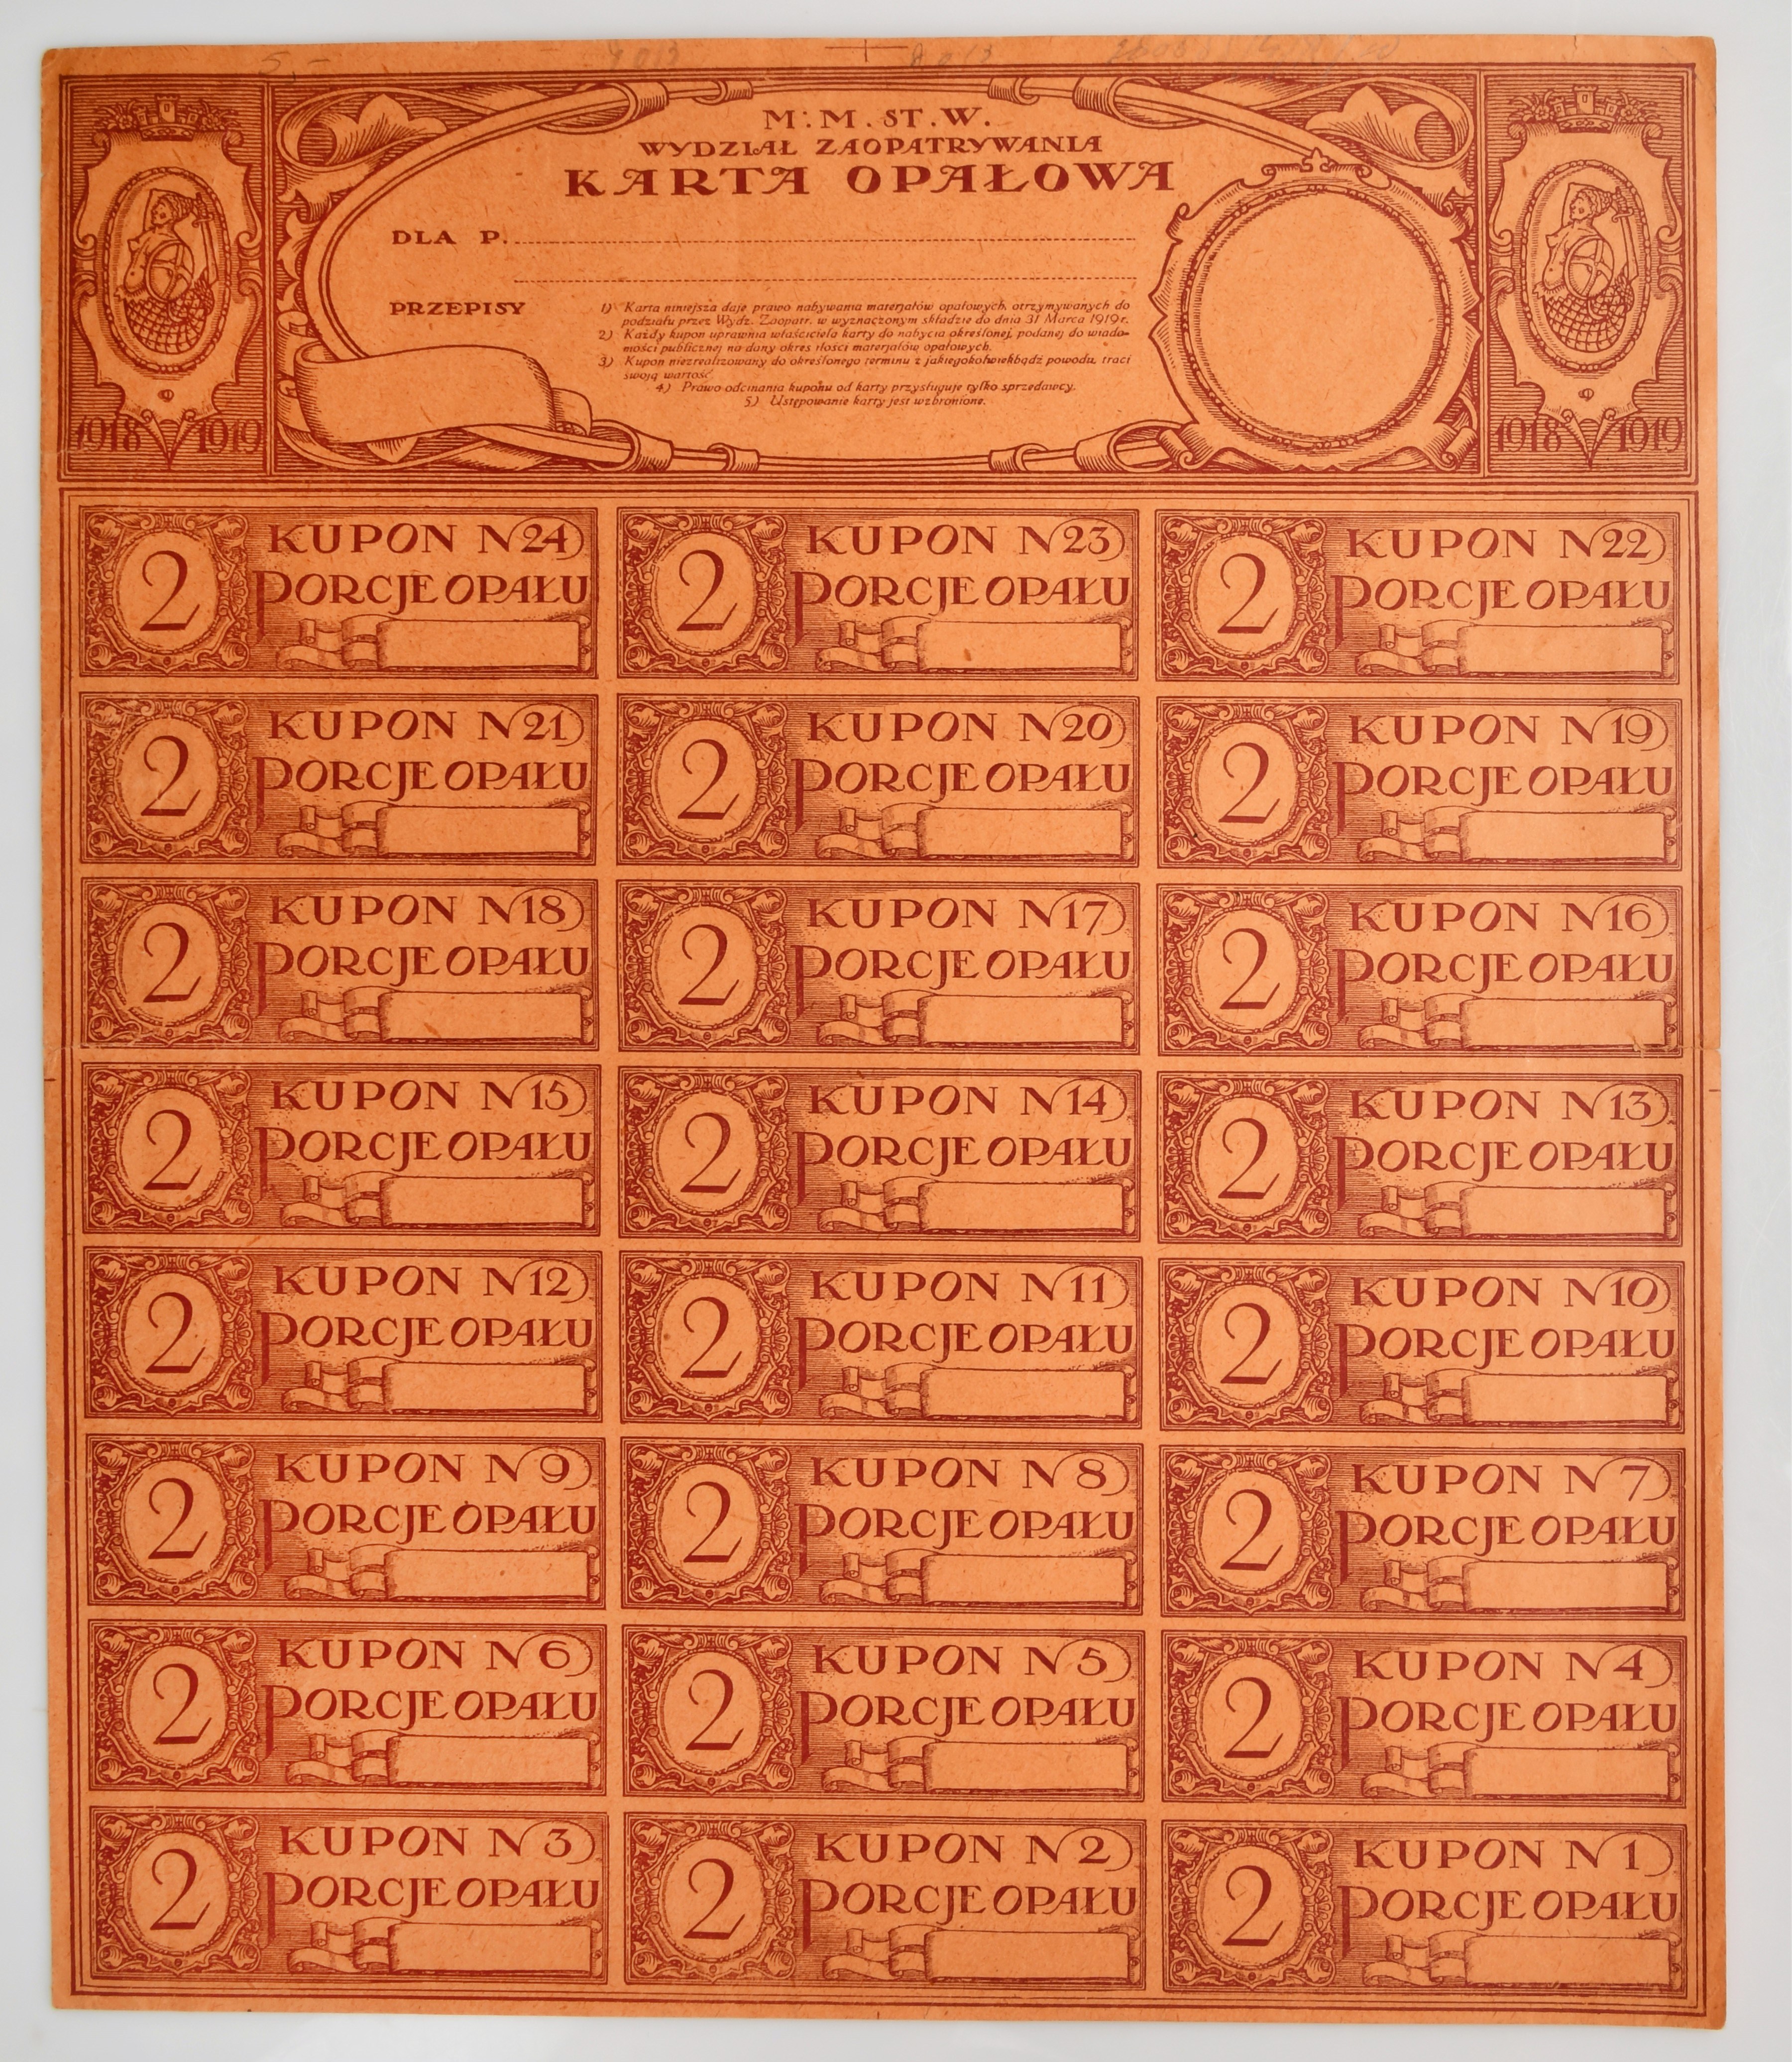 M. M. ST. W.
WYDZIAŁ ZAOPATRYWANIA
KARTA OPAŁOWA
DLA P.
PRZEPISY
1) Karta niniejsza daje prawo nabywania materjałów opałowych, otrzymywanych do
podziału przez Wydz. Zaopatr. w wyznaczonym składzie do dnia 31 Marca 1919 r.
2) Każdy kupon uprawnia właściciela karty do nabycia określonej, podanej do wiado-
mości publicznej na dany okres ilości materjałów opałowych.
3) Kupon niezrealizowany do określonego terminu z jakiegokolwiekbądź powodu, traci
swoją wartość.
4) Prawo odcinania kuponu od karty przysługuje tylko sprzedawcy.
5) Ustępowanie karty jest wzbronione.
1918 1919
1918 1919
2 KUPON N 24
PORCJE OPAŁU
2 KUPON N 23
PORCJE OPAŁU
2 KUPON N 22
PORCJE OPAŁU
2 KUPON N 21
PORCJE OPAŁU
2 KUPON N 20
PORCJE OPAŁU
2 KUPON N 19
PORCJE OPAŁU
2 KUPON N 18
PORCJE OPAŁU
2 KUPON N 17
PORCJE OPAŁU
2 KUPON N 16
PORCJE OPAŁU
2 KUPON N 15
PORCJE OPAŁU
2 KUPON N 14
PORCJE OPAŁU
2 KUPON N 13
PORCJE OPAŁU
2 KUPON N 12
PORCJE OPAŁU
2 KUPON N 11
PORCJE OPAŁU
2 KUPON N 10
PORCJE OPAŁU
2 KUPON N 9
PORCJE OPAŁU
2 KUPON N 8
PORCJE OPAŁU
2 KUPON N 7
PORCJE OPAŁU
2 KUPON N 6
PORCJE OPAŁU
2 KUPON N 5
PORCJE OPAŁU
2 KUPON N 4
PORCJE OPAŁU
2 KUPON N 3
PORCJE OPAŁU
2 KUPON N 2
PORCJE OPAŁU
2 KUPON N 1
PORCJE OPAŁU